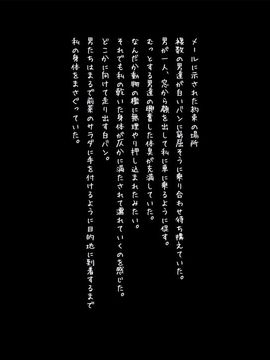 メールに示された約束の場所
複数の男達が白いバンに窮屈そうに乗り合わせ待ち構えていた。
男が一人、窓から顔を出して私に車に乗るように促す。
むっとする男達の興奮した体臭が充満していた。
なんだか動物の檻に無理やり押し込まれたみたい。
それでも私の乾いた身体が仄かに満たされて濡れていくのを感じた。
どこかに向けて走り出す白バン。
男たちはまるで前菜のサラダに手を付けるように目的地に到着するまで
私の身体をまさぐっていた。